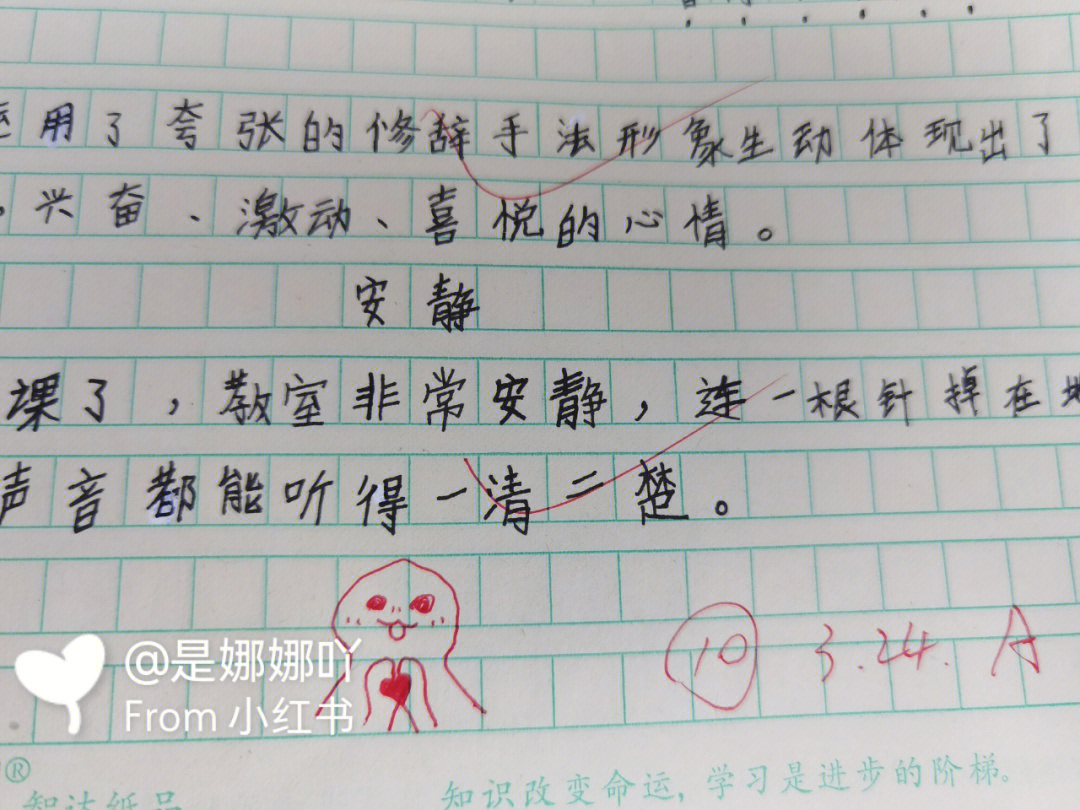 用了夸张的修辞手法形象生动体现出了
兴奋、激动、喜悦的心情。
安静
课了，教室非常安静，连一根针掉在地
声音都能听得一清二楚。
10 3.24. A
@是娜娜吖
From 小红书
知识改变命运,学习是进步的阶梯。